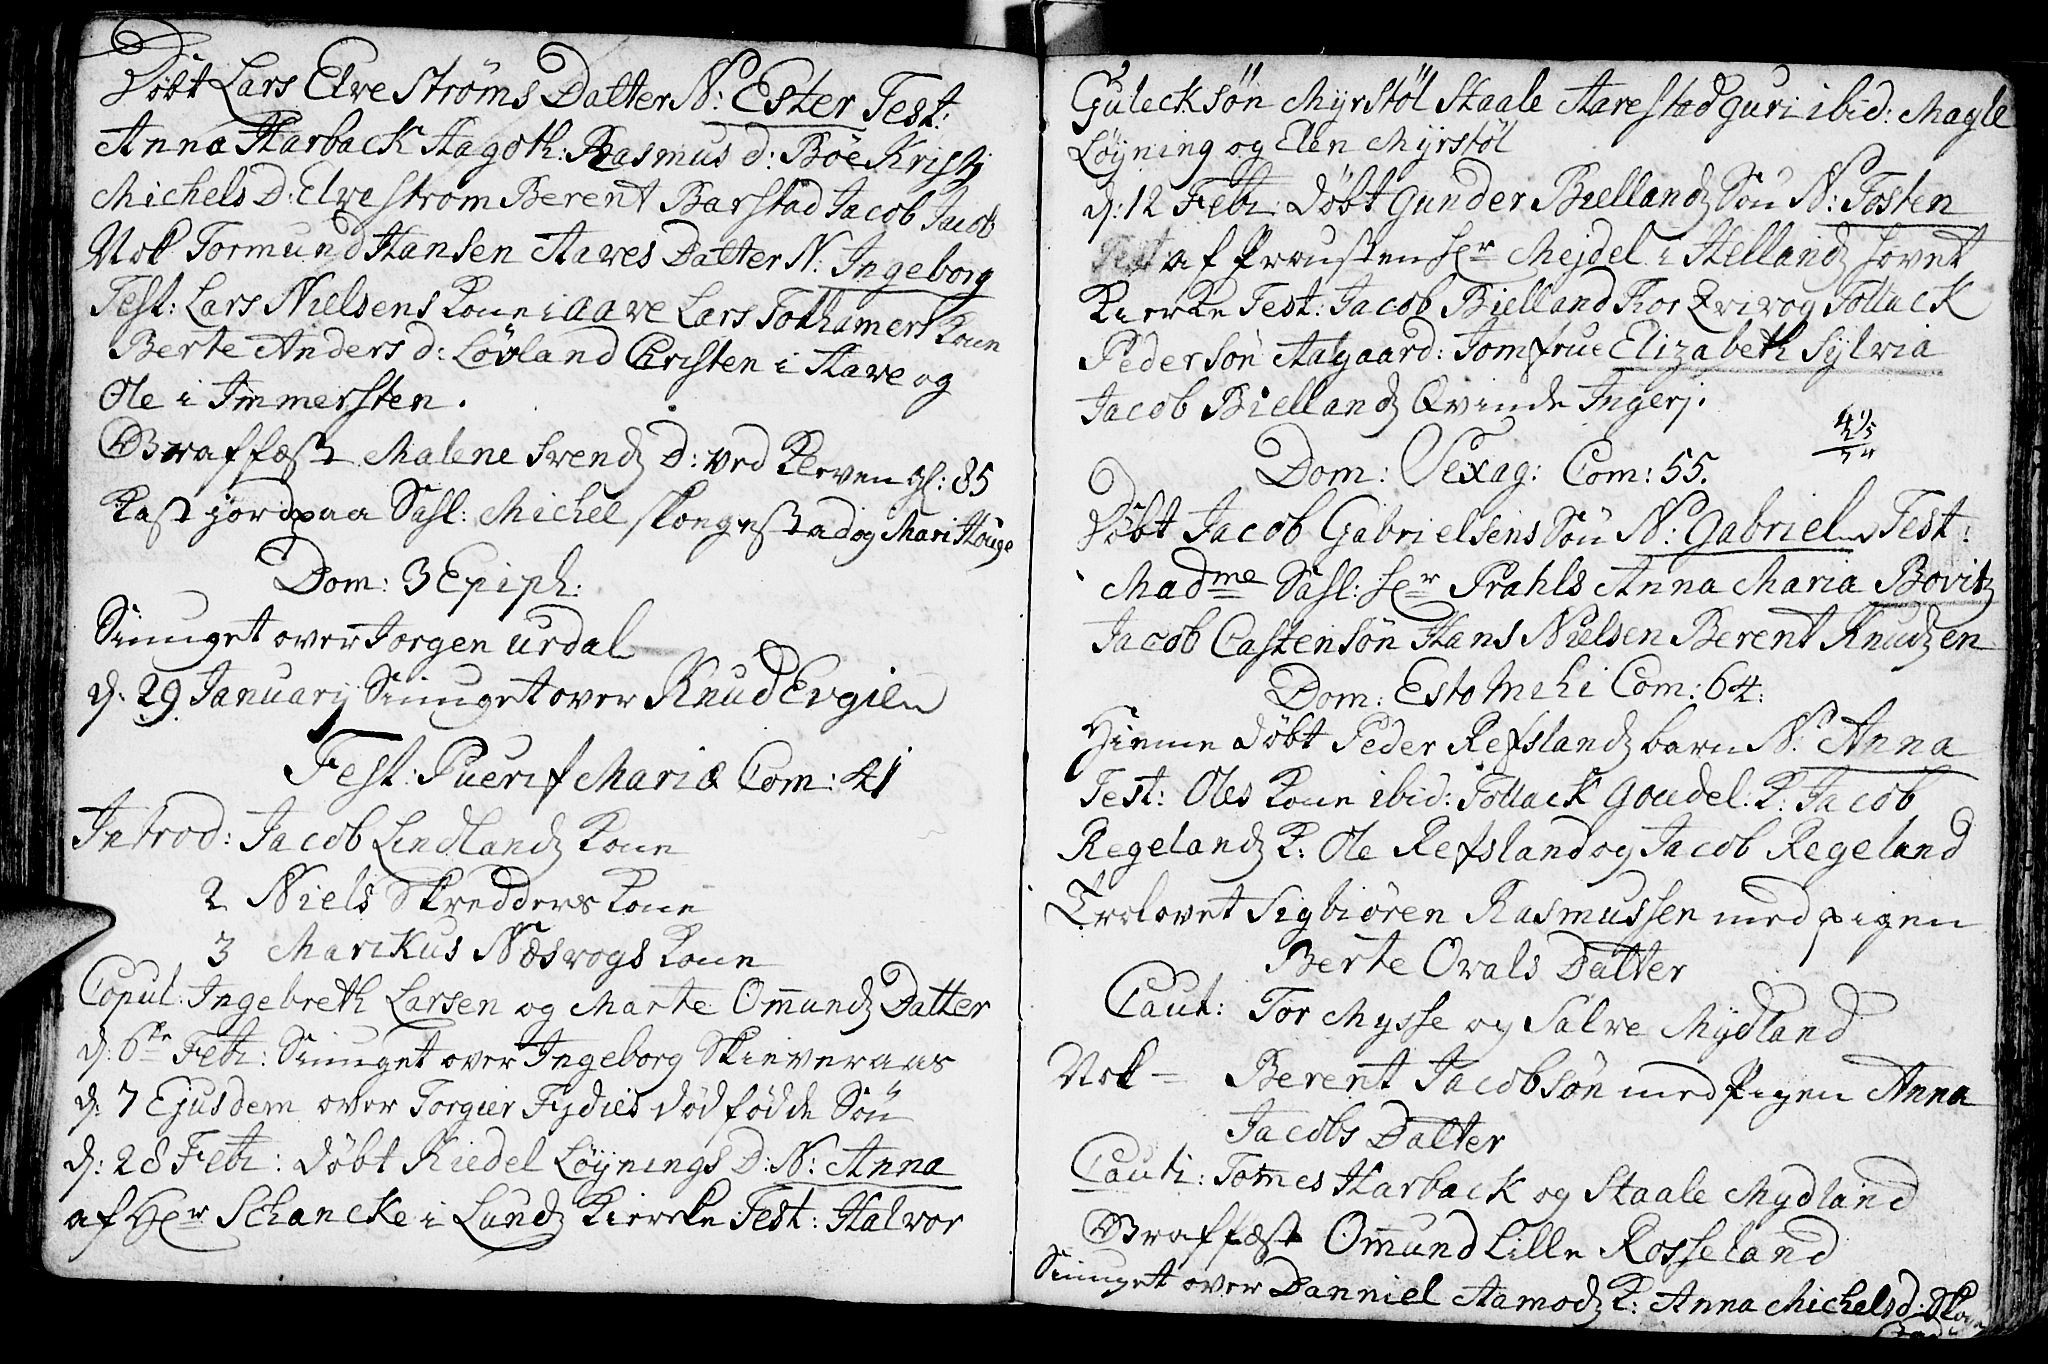 Döbt Lars Elve Ströms Datter N: Ester Test:
Anna Harback Hagoth: Rasmus d: Böe Kristj
Michels D: Elve strøm Berent Barstad Jacob Jacob
Nok Tormund Hansen Aaves Datter N: Ingeborg
Test: Lars Nielsens Kone i aave Lars Tothamers Kone
Berte Anders d: Lövland Christen i Aave og
Ole i Immersten.
Graffæst Malene Svends D: ved Kleven gl: 85
Kast jord paa Sahl: Michel Skongestad og Mari Houge
Dom: 3 Epiph:
Siunget over Jorgen Urdal
d: 29 Januarij Siunget over Knud Evgien
Fest: Puerif Mariæ Com: 41
Introd: Jacob Lindlands Kone
2 Niels Skredders Kone
3 Markus Næsvogs Kone
Copul: Ingebreth Larsen og Marte Omunds Datter
d: 6te Febr: Siunget over Ingeborg Skieveraas
d: 7 Ejusdem over Torgier Fydies dödfödde Sön
d: 28 Febr: döbt Kiedel Löynings D: N: Anna
af Her Schancke i Lunds Kiercke Test: Halvor
Guleck sön Myrstöl Staale Aarestad Guri ibid: Magle
Löyning og Elen Myrstöl
d: 12 Febr: döbt Gunder Biellands Sön N: Tosten
Test af Prousten Hr Mejdel i Hellands hovet
Kierke Test: Jacob Bielland Tollack
Pedersön Aalgaard: Jomfrue Elizabeth Sylvia
Jacob Biellands Qvinde Ingerj.
Dom: Sexag: Com: 55.
Döbt Jacob Gabrielsens Sön N: Gabriel Test:
Madme Sahl: Hr Prahls Anna Maria Bovitz
Jacob Castensön Hans Nielsen Berent Knudzen
Dom: Esto Mihi Com: 64:
Hieme döbt Peder Refslands barn N: Anna
Test: Oles Kone ibid: Tollack Goudel: K: Jacob
Regelands K: Ole Refsland og Jacob Regeland
Trolovet Sigbiören Rasmussen med pigen
Berte Ovals Datter
Caut: Tor Mysse og Salve Mydland
Nok - Berent Jacobsön med Pigen Anna
Jacobs Datter
Cauti: Tomes Harback og Staale Mydland
Graffæst Omund Lille Rosseland
Siunget over Danniel Aamods K: Anna Michelsd: